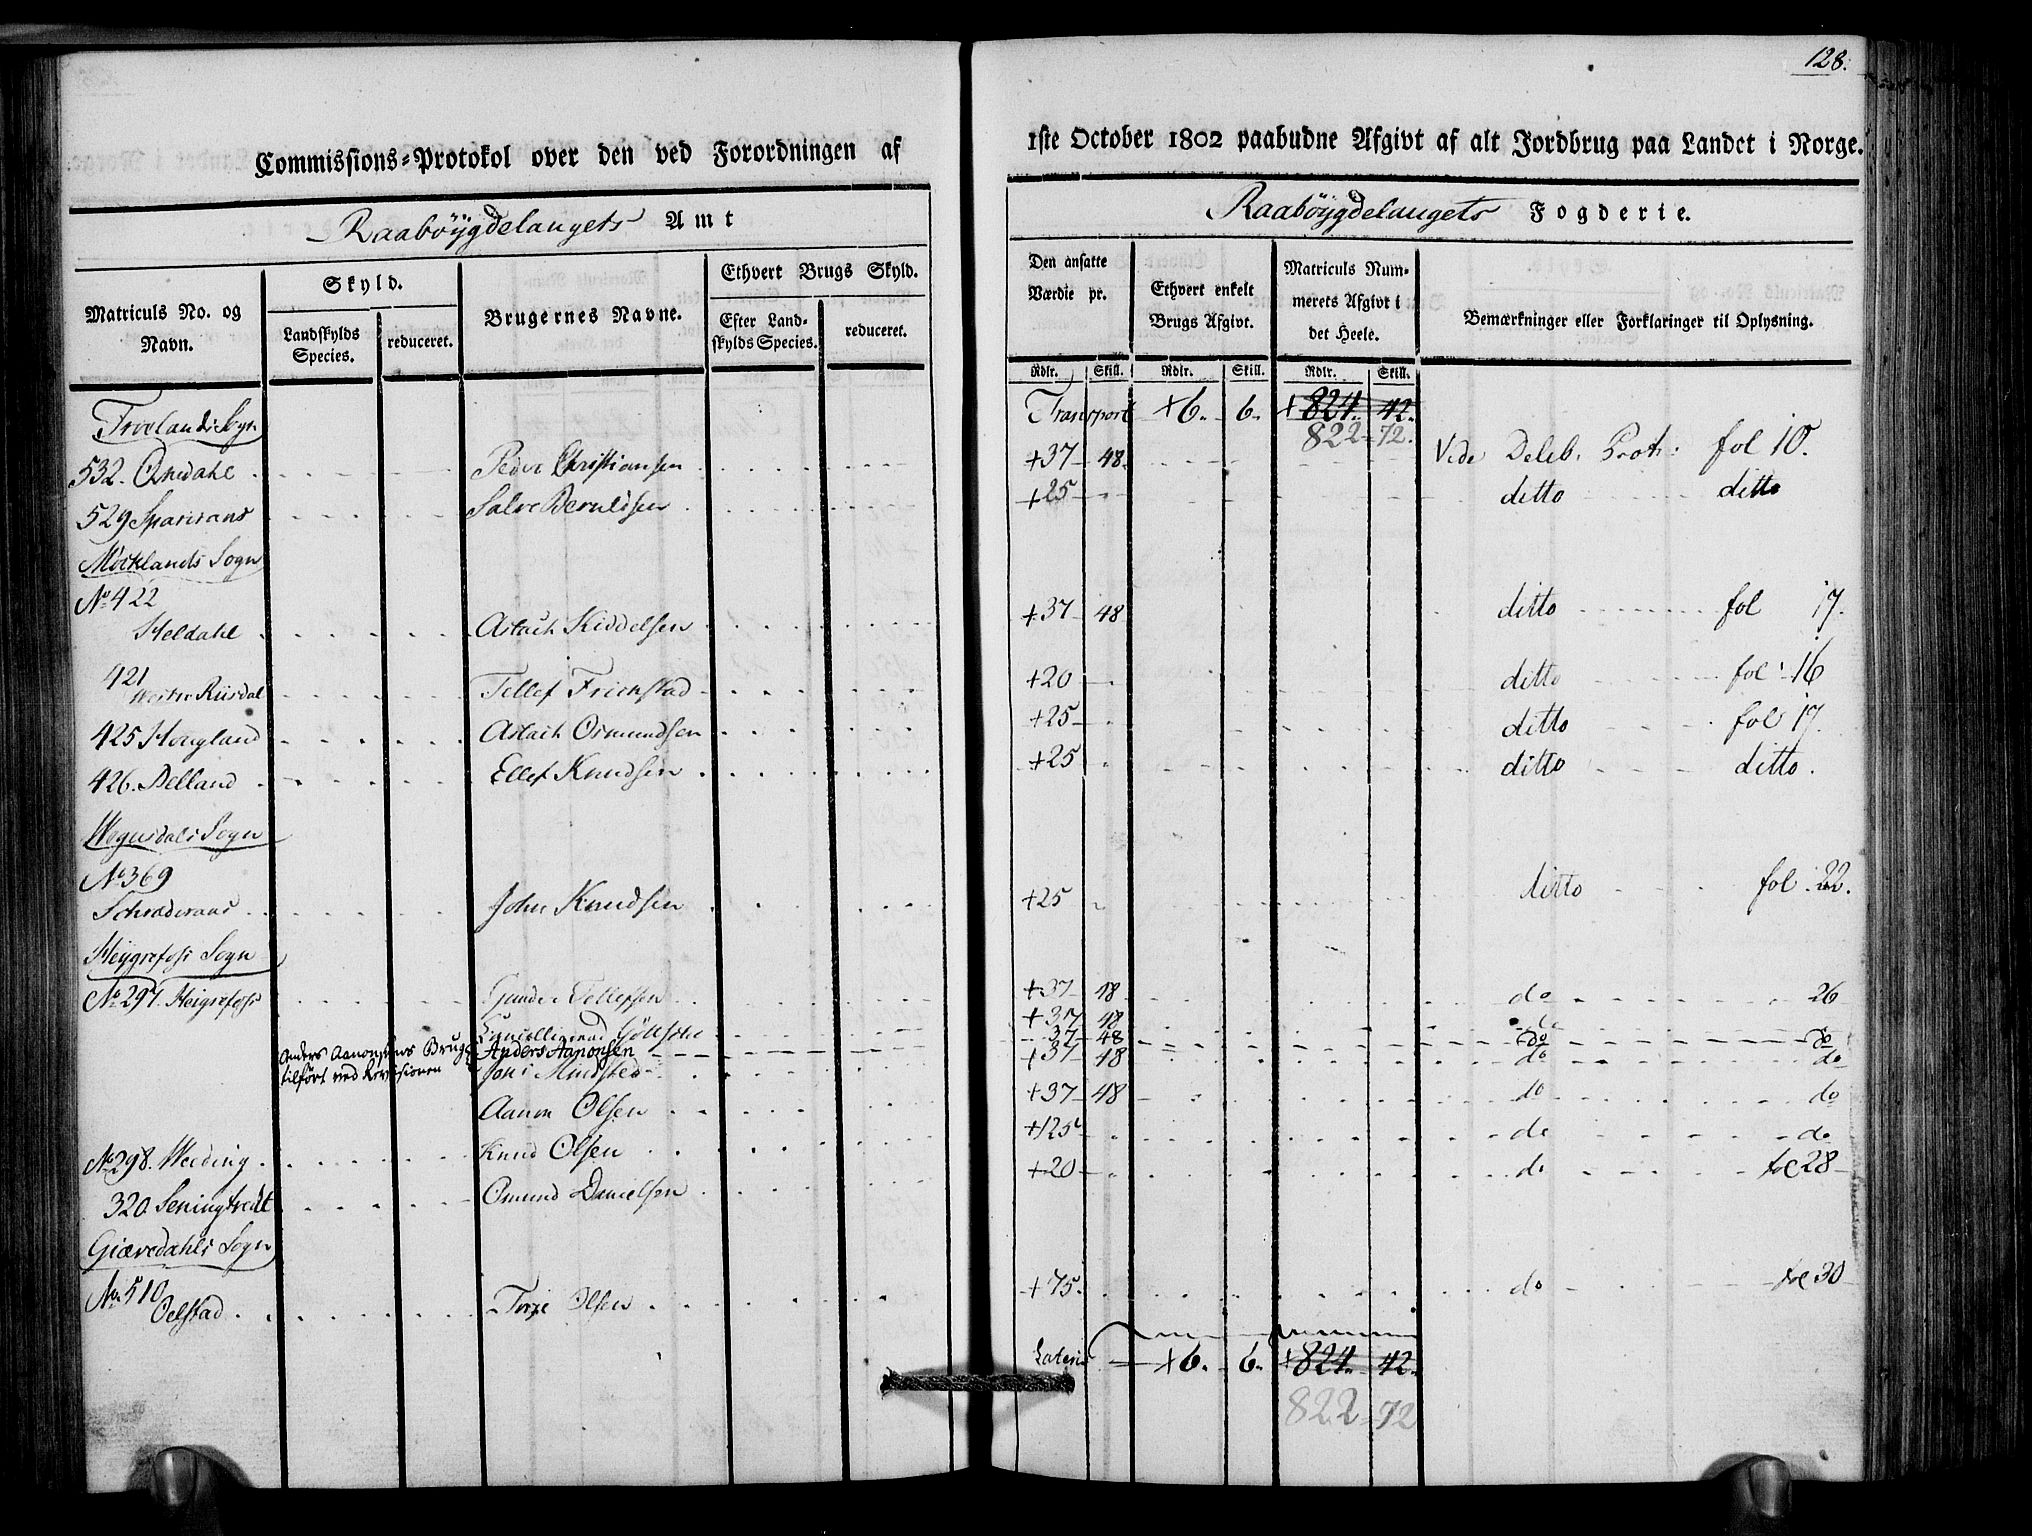 128.
Commissions-Protokol over den ved Forordningen af
1ste October 1802 paabudne Afgivt af alt Jordbrug paa Landet i Norge.
Raabøÿgdelaugets Amt
Raabøÿgdelaugets Fogderie.
Matriculs No. og Navn.
Skyld.
Landskylds Species.
reduceret.
Brugernes Navne.
Ethvert Brugs Skyld.
Efter Landskylds Species.
reduceret.
Den ansatte Værdie pr.
Ethvert enkelt Brugs Afgivt.
Matriculs Nummerets Afgivt i det Heele.
Bemærkninger eller Forklaringer til Oplysning.
Rdlr. Skill. Rdlr. Skill. Rdlr. Skill.
Transport +6. 6. +824. 42.
822 - 72.
Froelands Sogn
532. Qnedahl Peder Christiansen +37 - 48. Vide Deleb. Prot: fol 10.
529 Sparsaas Salve Berulfsen +25 - ditto ditto
Mørklands Sogn
No 422
Heldahl Aslach Kiddelsen +37 - 48 ditto fol 17.
421
Westre Riisdal Tellef Frienstad +20 - ditto fol: 16
425 Hougland Aslach Osmundsen +25 - ditto fol 17.
426. Delland Ellef Knudsen +25 ditto ditto.
Wegusdals Sogn
No 369
Schræderaas John Knudsen +25 ditto fol. 22.
Heÿgrefos Sogn
No 297. Heigrefoss Gunder Tellefsen +37 - 48 do 26
+37 48 do
Anders Aanonsens Brug Anders Aanonsen 37 - 48 do do
tilført ved Revisionen Jens +37 - 48 do do
Aanon Olsen +37 - 48 do do
No 298. Weeding Knud Olsen +125 - do do
320. Seningtvedt Osmund Danielsen +20 - do fol 28
Giævedahls Sogn
No. 510
Oelstad Torje Olsen +75. do fol 30
Lateris +6. 6. +824. 42.
822 - 72